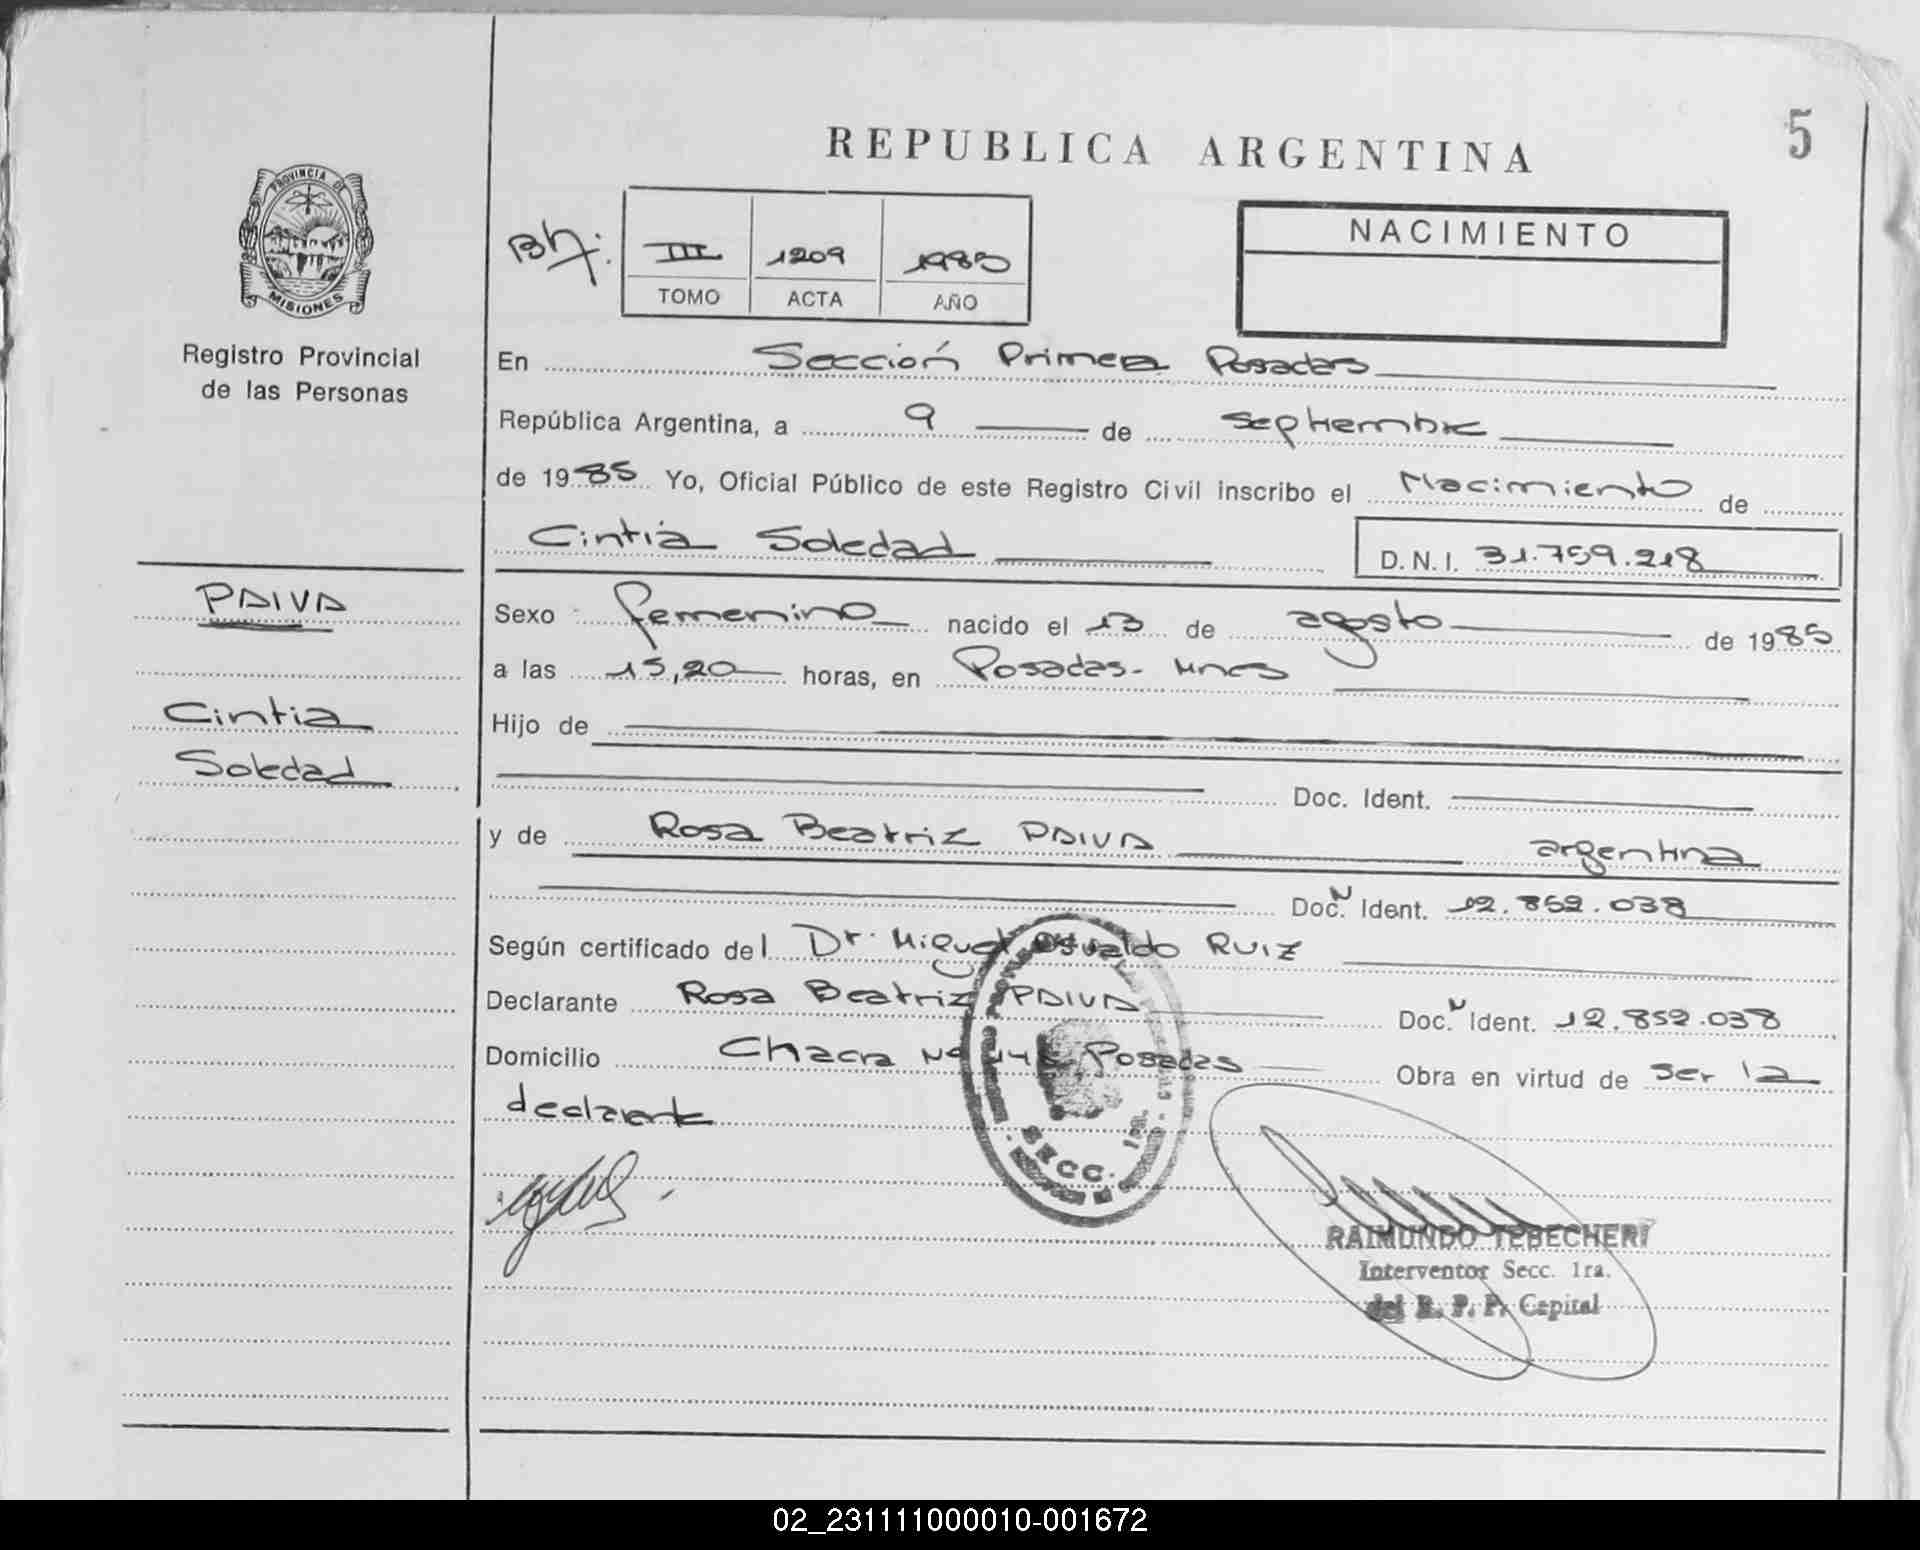 5
REPUBLICA ARGENTINA
PROVINCIA DE
MISIONES
Registro Provincial
de las Personas
III 1209 1985
TOMO ACTA AÑO
NACIMIENTO
En Sección Primera Posadas
República Argentina, a 9 de septiembre
de 1985 Yo, Oficial Público de este Registro Civil inscribo el Nacimiento de
Cintia Soledad D.N.I. 31.759.218
PAIVA
Cintia
Soledad
Sexo femenino nacido el 13 de agosto de 1985
a las 15,20 horas, en Posadas - Mnes
Hijo de
Doc. Ident.
y de Rosa Beatriz PAIVA argentina
Doc. N Ident. 12.852.038
Según certificado del Dr. Miguel Osvaldo RUIZ
Declarante Rosa Beatriz PAIVA Doc. N Ident. 12.852.038
Domicilio Chacra Nº Posadas Obra en virtud de ser la
declarante
SECC. 1ra.
RAIMUNDO TEBECHERI
Interventor Secc. 1ra.
del R. P. P. Capital
02_231111000010-001672